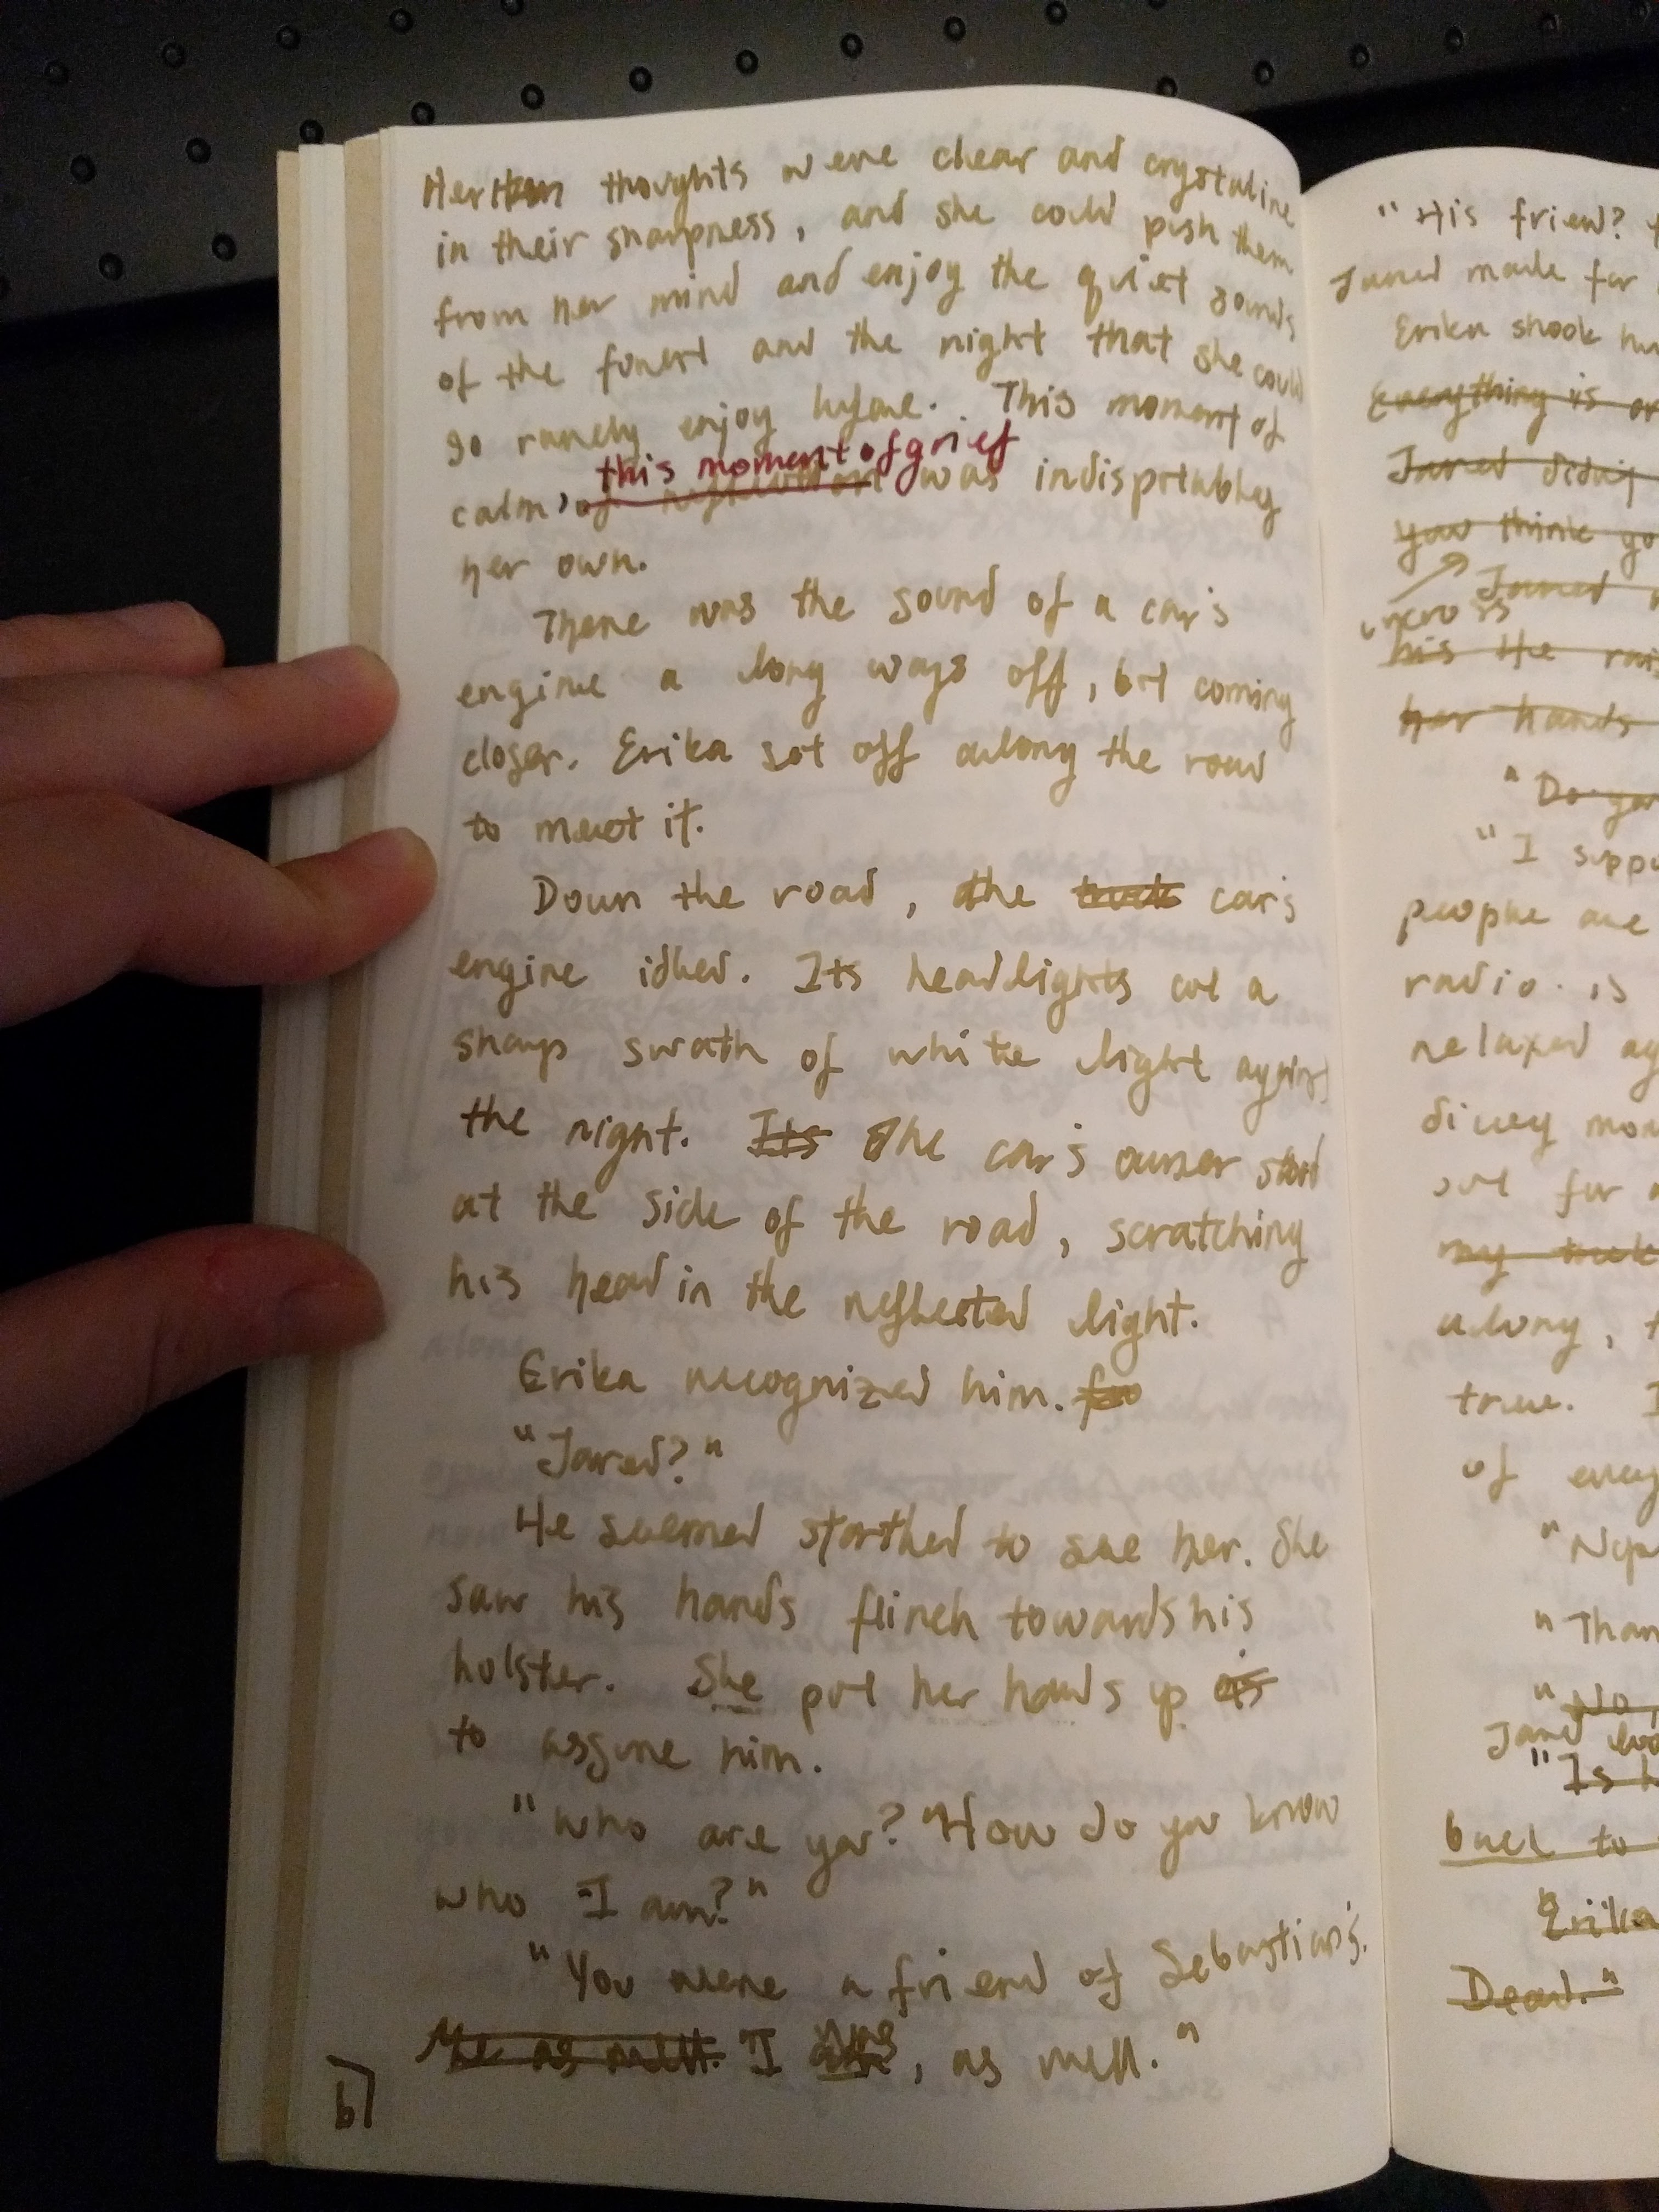 Her thoughts were clear and crystaline
in their sharpness, and she could push them
from her mind and enjoy the quiet sounds
of the forest and the night that she could
so rarely enjoy before. This moment of
this moment of grief
calm, was indisputabley
her own.
There was the sound of a car's
engine a long ways off, but coming
closer. Erika set off along the road
to meet it.
Down the road, the truck car's
engine idled. Its headlights cut a
sharp swath of white light against
the night. Its The car's owner stood
at the side of the road, scratching
his head in the reflected light.
Erika recognized him.
"Jared?"
He seemed startled to see her. She
saw his hands flinch towards his
holster. She put her hands up as
to assure him.
"Who are you? How do you know
who I am?"
"You were a friend of Sebastian's.
Me as well. I was, as well."
6
"His friend?
Jared made for
Erika shook her
Everything is
Jared didn't
you think
Jared
his the
her hands
"Do you
"I
people are
radio. is
relaxed
dicey
out for
my truck
along,
true.
of every
"
"
"No,
Jared
"Is
back to
Erika
Dead."